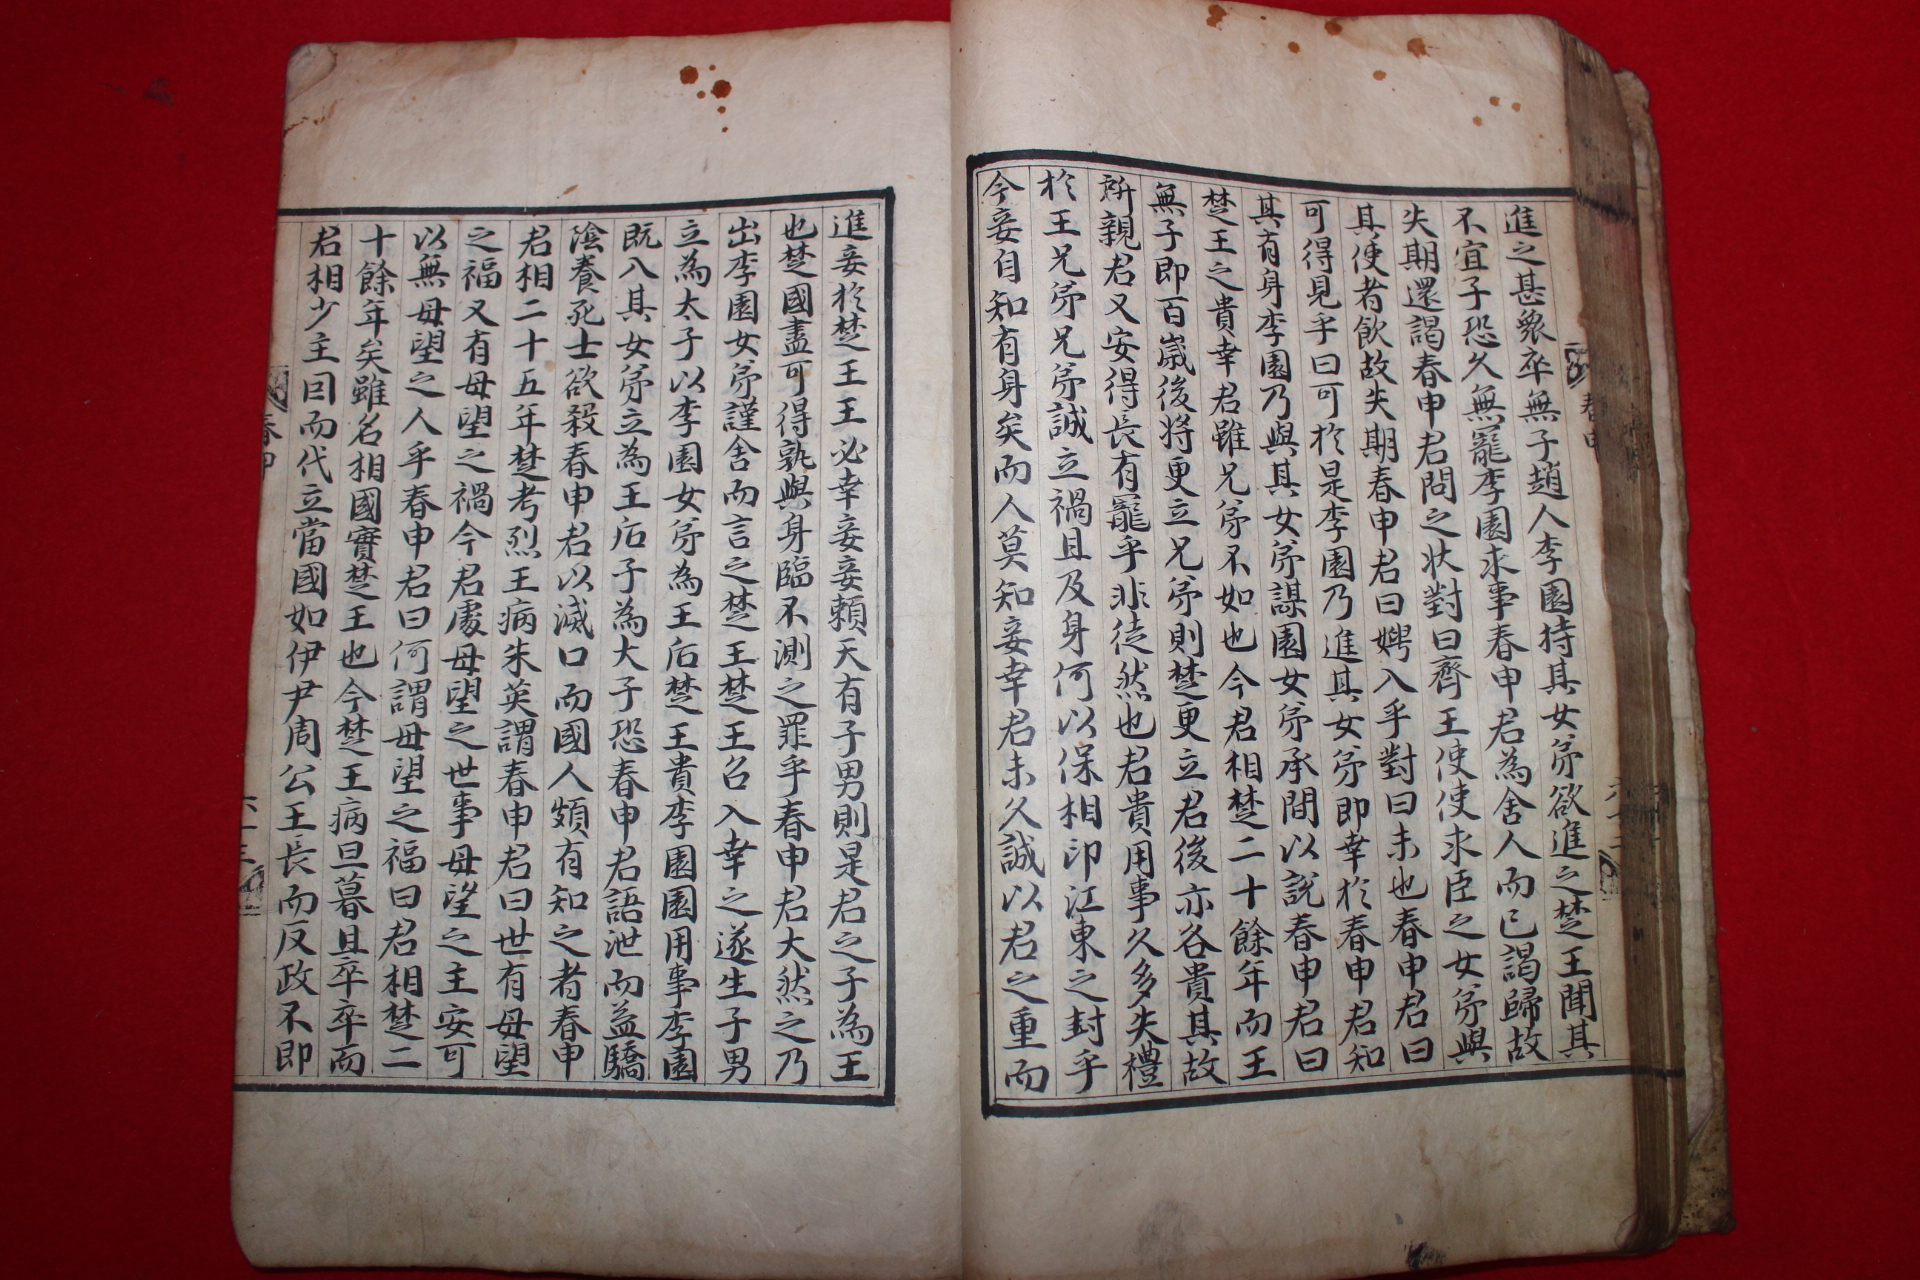 進之甚衆卒無子趙人李園持其女㐧欲進之楚王聞其
不宜子恐久無寵李園求事春申君為舍人而已謁歸故
失期還謁春申君問之状對曰齊王使使求臣之女㐧與
其使者飲故失期春申君曰娉入乎對曰未也春申君曰
可得見乎曰可於是李園乃進其女㐧即幸於春申君知
其有身李園乃與其女㐧謀園女㐧承間以說春申君曰
楚王之貴幸君雖兄㐧不如也今君相楚二十餘年而王
無子即百嵗後將更立兄㐧則楚更立君後亦各貴其故
所親君又安得長有寵乎非徒然也君貴用事久多失禮
於王兄㐧兄㐧誠立禍且及身何以保相印江東之封乎
今妾自知有身矣而人莫知妾幸君未久誠以君之重而
進妾於楚王王必幸妾妾賴天有子男則是君之子為王
也楚國盡可得孰與身臨不測之罪乎春申君大然之乃
出李園女㐧謹舍而言之楚王楚王召入幸之遂生子男
立為太子以李園女㐧為王后楚王貴李園園用事李園
既入其女㐧立為王后子為太子恐春申君語泄而益驕
陰養死士欲殺春申君以滅口而國人頗有知之者春申
君相二十五年楚考烈王病朱英謂春申君曰世有毋望
之福又有毋望之禍今君處毋望之世事毋望之主安可
以無毋望之人乎春申君曰何謂毋望之福曰君相楚二
十餘年矣雖名相國實楚王也今楚王病旦暮且卒卒而
君相少主因而代立當國如伊尹周公王長而反政不即
春申
六十三
春申